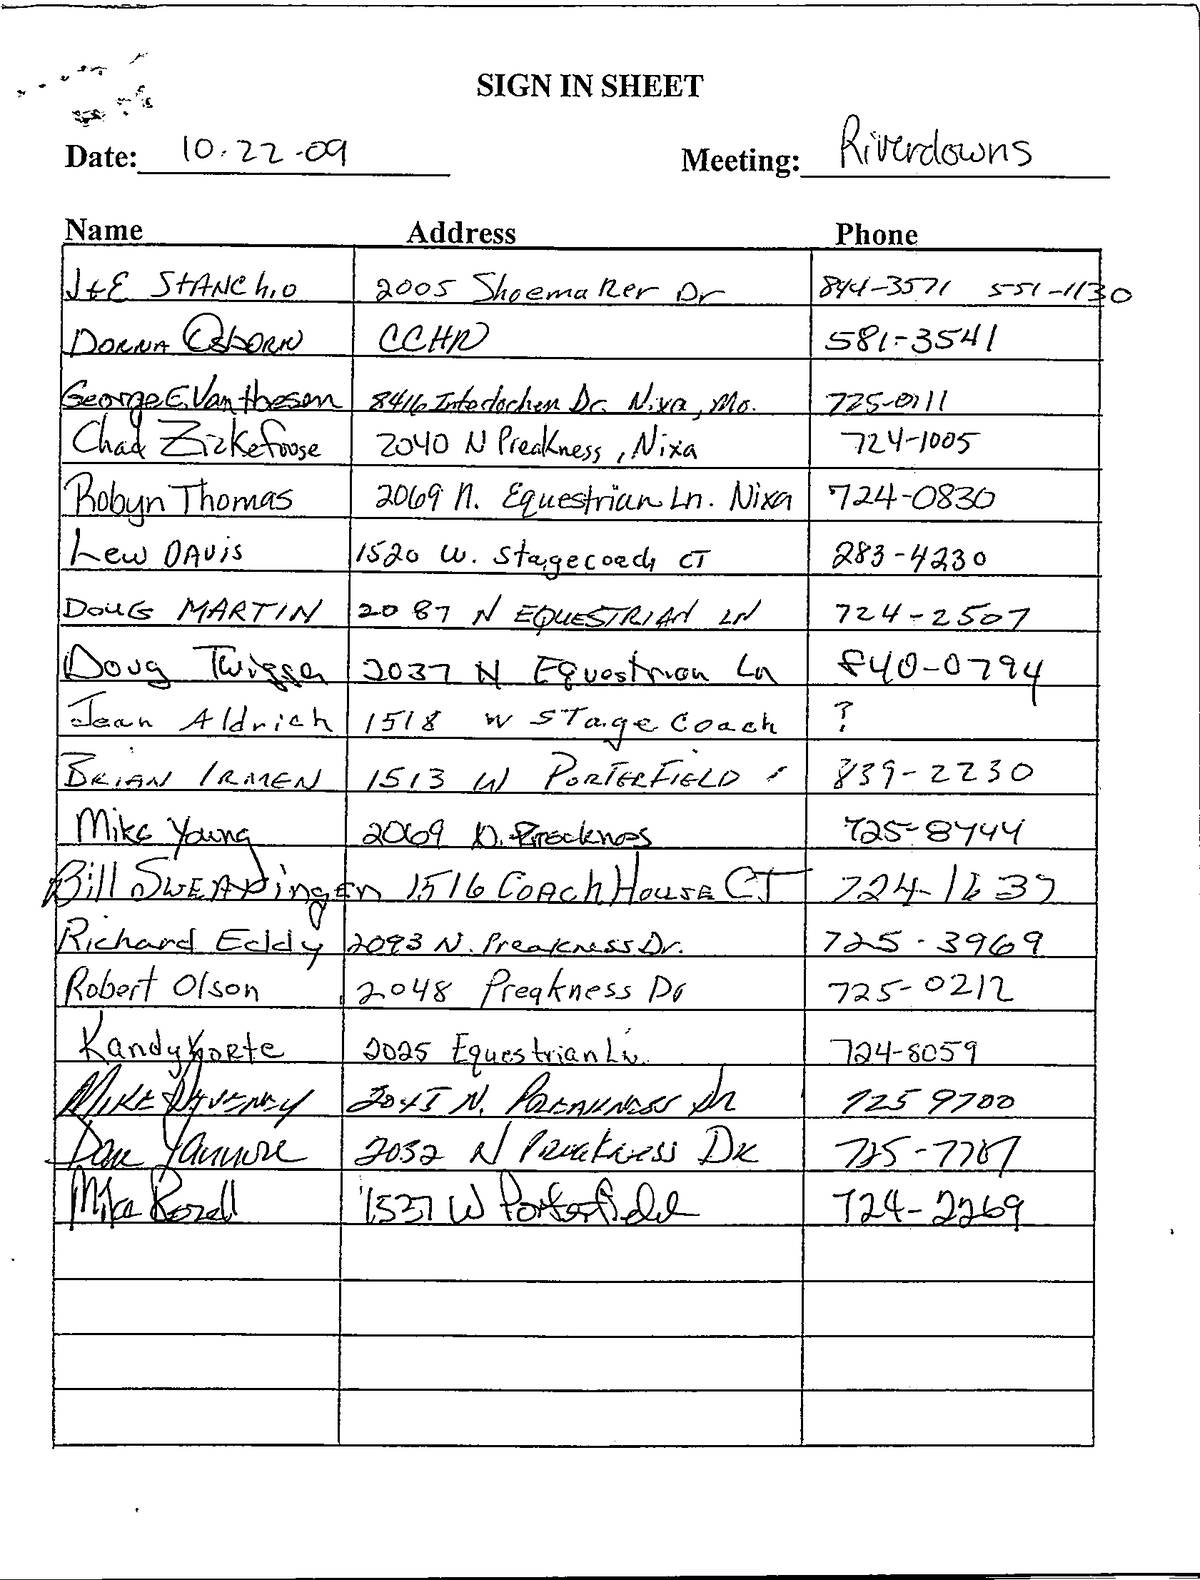 SIGN IN SHEET
Date: 10-22-09 Meeting: Riverdowns
Name Address Phone
J+E STANChio 2005 Shoemaker Dr 844-3571 551-1130
DONNA OSBORN CCHD 581-3541
George E. Van Hoesen 8416 Interlochen Dr. Nixa, Mo. 725-0111
Chad Zirkefoose 2040 N Preakness, Nixa 724-1005
Robyn Thomas 2069 N. Equestrian Ln. Nixa 724-0830
Lew DAVIS 1520 W. Stagecoach CT 283-4230
DOUG MARTIN 2087 N EQUESTRIAN LN 724-2507
Doug Twigger 2037 N Equestrian Ln 840-0794
Jean Aldrich 1518 W STageCoach ?
BRIAN IRMEN 1513 W PORTERFIELD 839-2230
Mike Young 2069 N. Preakness 725-8744
Bill SWEARingen 1516 COACh HOUSE CT 724-1637
Richard Eddy 2093 N. Preakness Dr. 725-3969
Robert Olson 2048 Preakness Dr 725-0212
Kandy Korte 2025 Equestrian Ln. 724-8059
MIKE 2045 N. PREAKNESS DR 725 9700
2032 N PREAKNESS DR 725-7787
Mike Bozell 1537 W Porterfield 724-2269